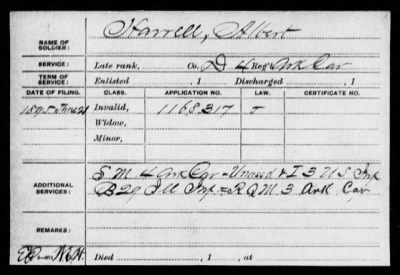 NAME OF SOLDIER: Harrell, Albert
SERVICE: Late rank, Co. D 4 Reg't Ark Cav
TERM OF SERVICE: Enlisted , 1 Discharged , 1
DATE OF FILING. CLASS. APPLICATION NO. LAW. CERTIFICATE NO.
1895 June 21 Invalid, 1168317 J
Widow,
Minor,
ADDITIONAL SERVICES: S M 4 Ark Cav - Unasd & I 3 U S Inf
B 29 Ill Inf = R Q M 3 Ark Cav
REMARKS:
Died , 1 , at